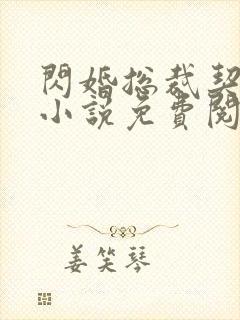 閃婚總裁契
小說免費閱
姜笑琴